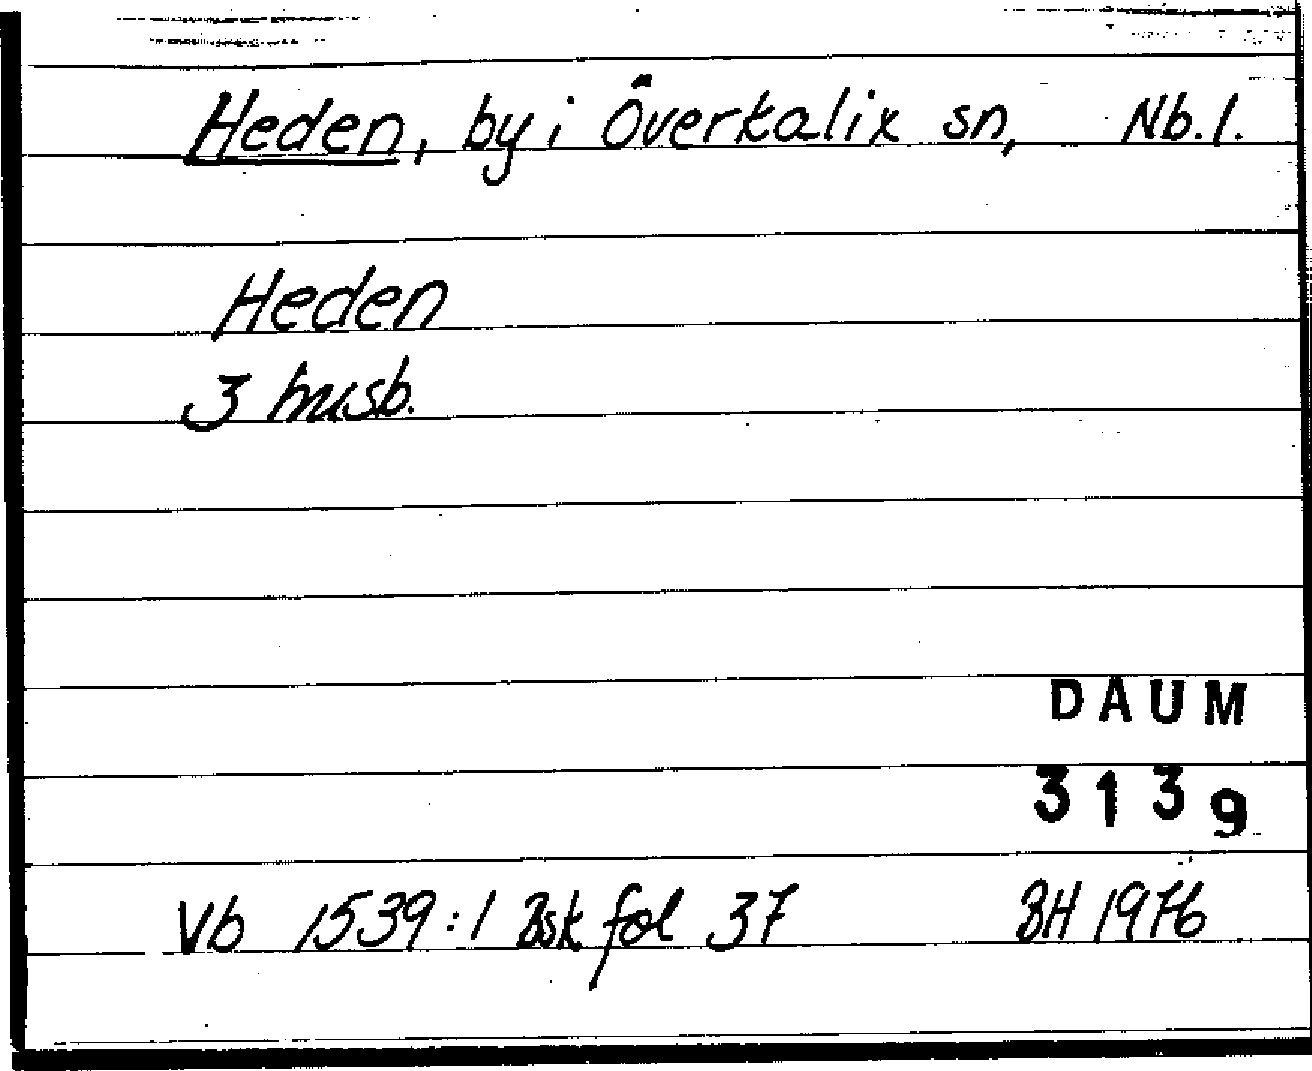 Heden, by i Överkalix sn, Nb. l.
Heden
3 husb.
DAUM
3139
Vb 1539:1 Bsk fol 37 BH 1976